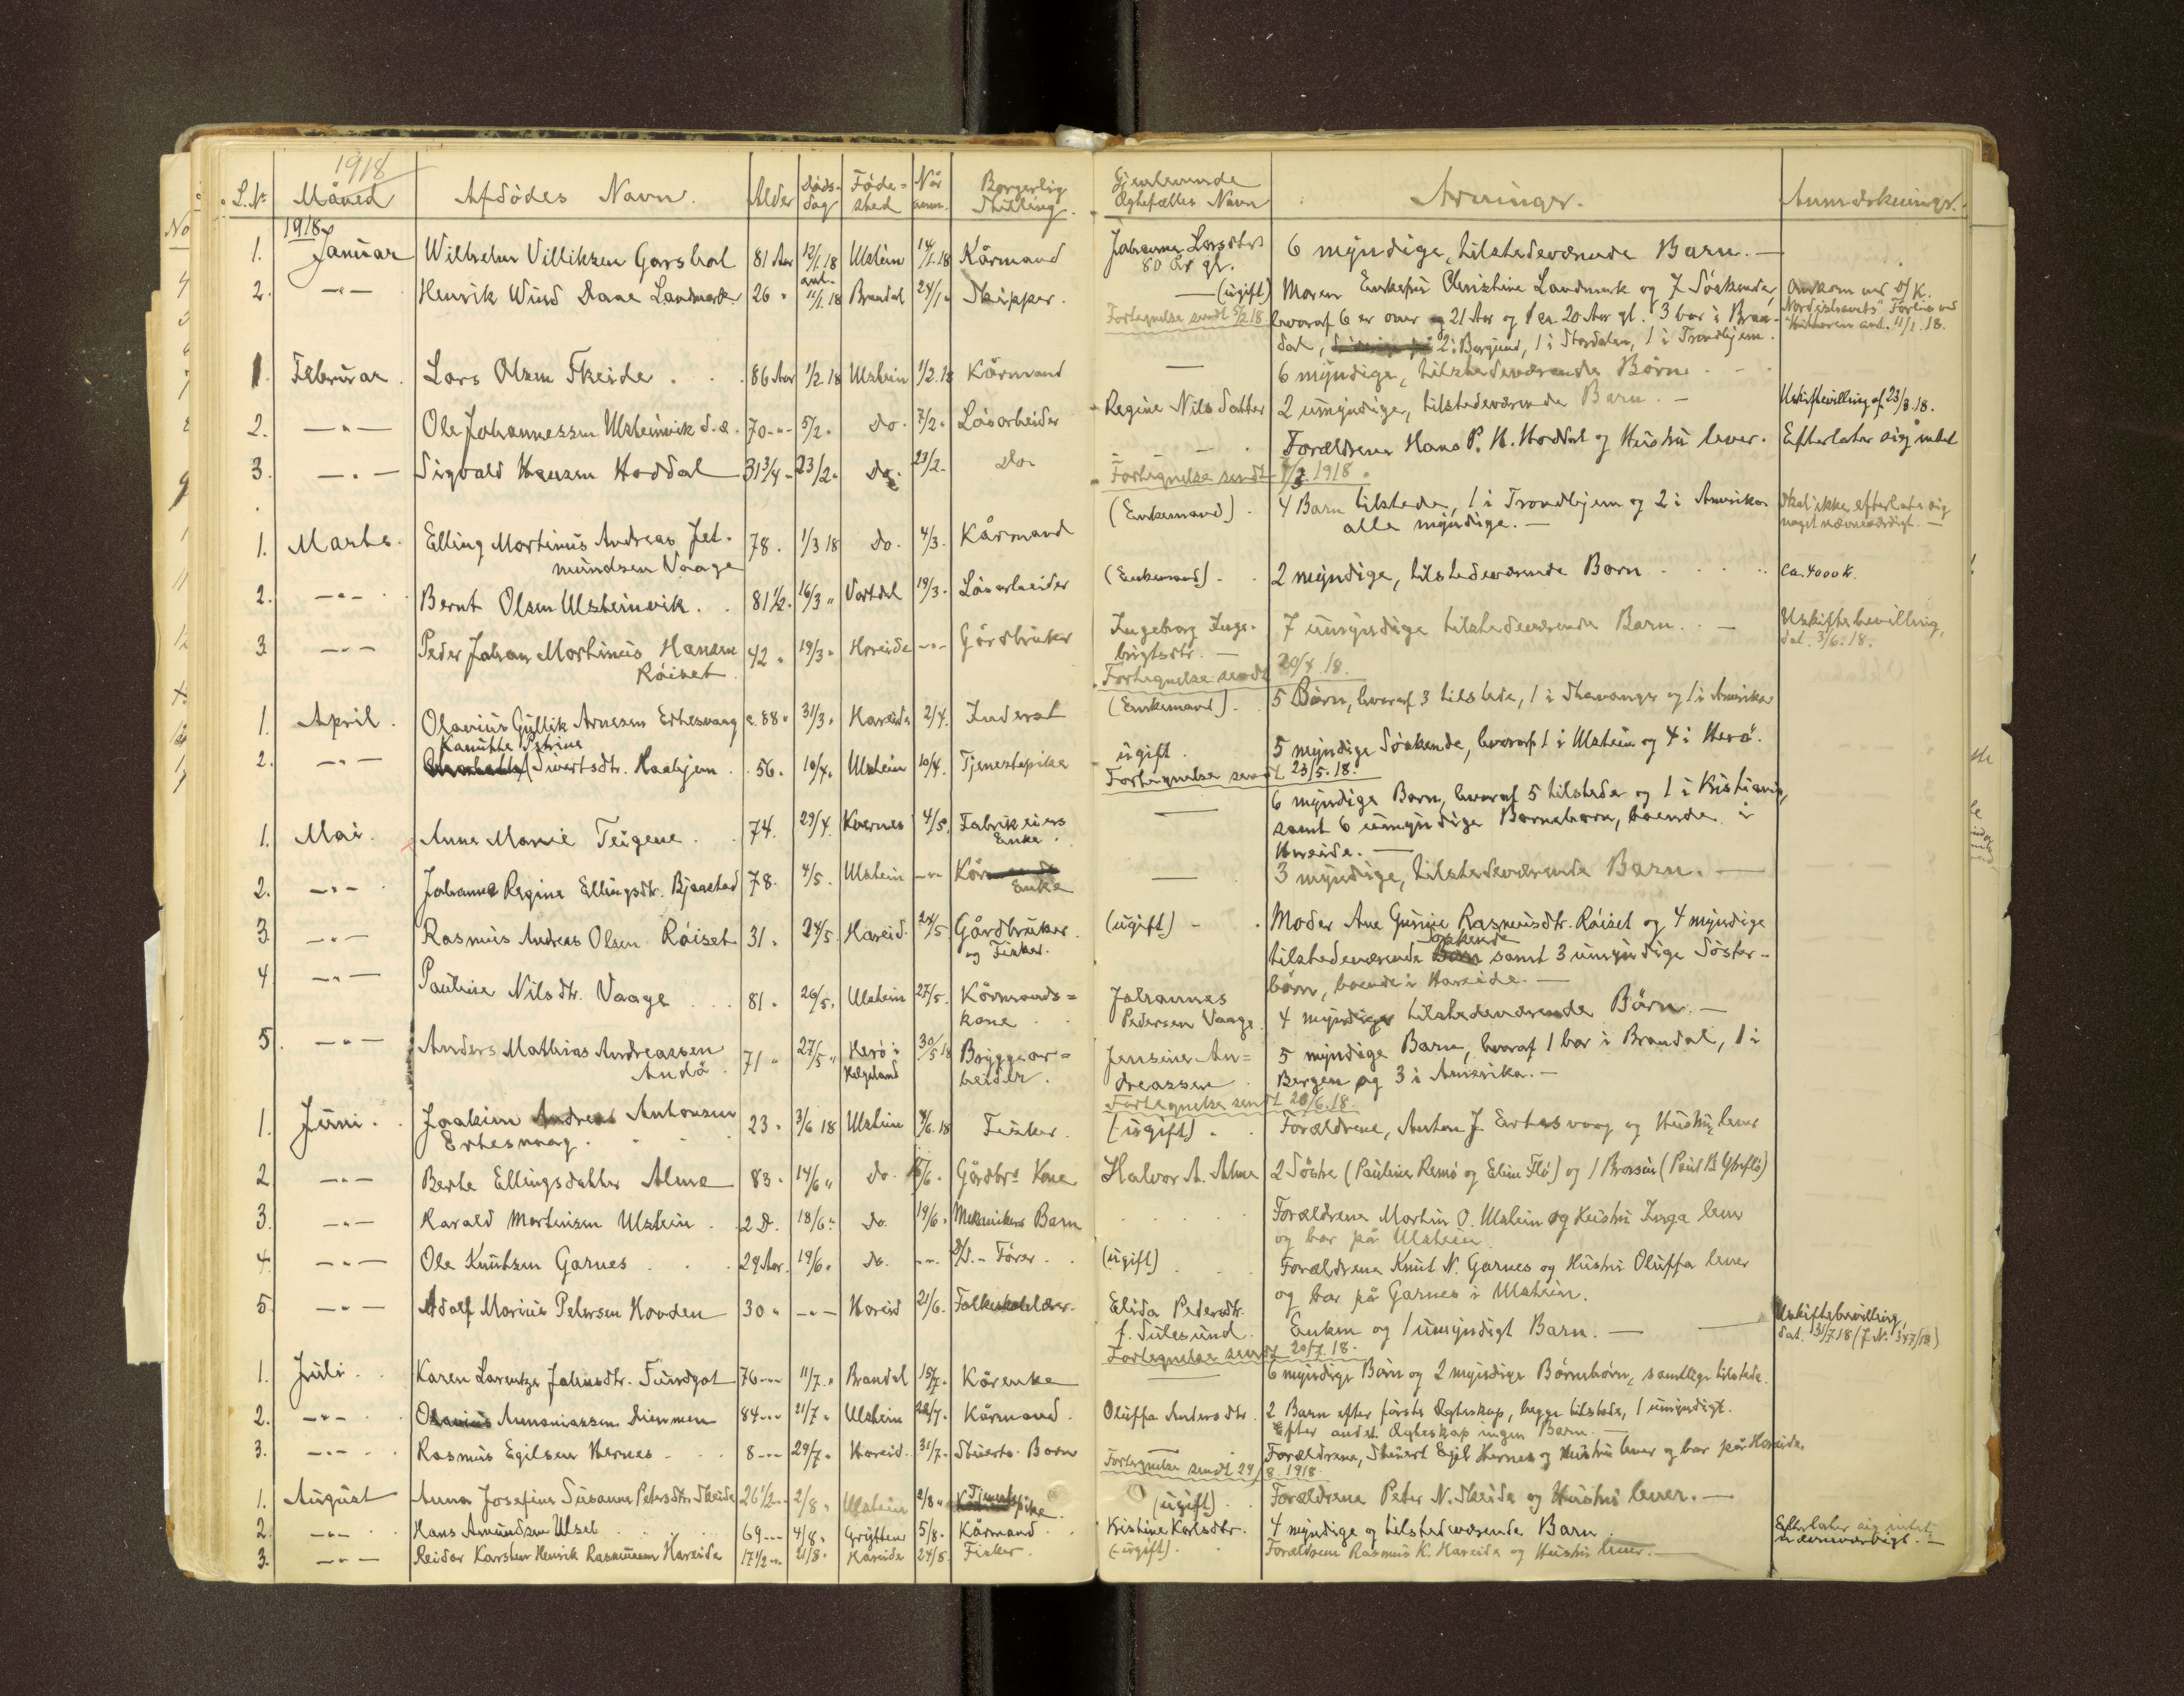 1918
L.№ Måned Afdödes Navn. Alder Döds-dag Föde-sted Når anm. Borgerlig Stilling. Gjenlevende Ægtefælles Navn Arvinger. Anmærkninger.
1918
1. Januar Wilhelm Villiksen Garshol 81 Aar 12/1.18 Ulstein 14/1.18 Kårmand Johanne Larsdtr. 80 år gl. 6 myndige, tilstedeværende Barn. —
2. —"— Henrik Wiird Daae Landmark 26 " ant. 11/1.18 Brandal 24/1 " Skipper. — (ugift) Moren Enkefru Christine Landmark og 7 Söskende,
Fortegnelse sendt 5/2 18 hvoraf 6 er over 21 Aar og 1 er 20 Aar gl. 3 bor i Bran-
dal, 2 i Borgund, 1 i Stordalen, 1 i Trondhjem.
Ankom med S/K.
"Nordishavets" Forlis ved
ant. 11/1.18.
1. Februar. Lars Olsen Skeide . . . 86 Aar 1/2.18 Ulstein 1/2.18 Kårmand — 6 myndige, tilstedeværende Börn. - -
2. —"— Ole Johannessen Ulsteinvik d.æ. 70 -"- 5/2 " do. 7/2 " Lösarbeider Regine Nilsdatter 2 umyndige, tilstedeværende Barn. — Uskiftebevilling af 23/3.18.
3. —"— Sigvald Hansen Hoddal 31 3/4 " 23/2 " do. 23/2 - do. - Forældrene Hans P. H. Hoddal og Hustru lever. Efterlater sig intet
Fortegnelse sendt 1/3 1918.
1. Marts. Elling Martinus Andreas Jet-
mundsen Vaage 78. 1/3 18 do. 4/3. Kårmand (Enkemand). 4 Barn tilstede, 1 i Trondhjem og 2 i Amerika
alle myndige. —
Skal ikke efterlate sig
noget nævneværdigt. —
2. —"— Bernt Olsen Ulsteinvik. . 81 1/2. 16/3 " Vartdal 19/3. Lösarbeider (Enkemand). . 2 myndige, tilstedeværende Barn . . . ca. 4000 kr.
3 —"— Peder Johan Martinus Hansen
Röiset 42 " 19/3 " Hareide —"— Gårdbruker Ingeborg Inge-
brigtsdtr. — 7 umyndige tilstedeværende Barn. — Uskiftebevilling,
dat. 3/6.18.
Fortegnelse sendt 20/4 18.
1. April. Olavius Gullik Arnesen Eshesvaag c. 88 " 31/3 " Hareide 2/4. Inderst (Enkemand). 5 Börn, hvoraf 3 tilstede, 1 i Stavanger og 1 i Amerika
Kanutte Petrine
2. —"— Sivertsdtr. Haahjem . 56. 10/4. Ulstein 10/4. Tjenestepike ugift. 5 myndige Söskende, hvoraf 1 i Ulstein og 4 i Herö.
Fortegnelse sendt 23/5.18.
1. Mai. Anna Marie Teigene . . 74. 29/4. Kvernes 4/5. Fabrikeiers
Enke. — 6 myndige Barn, hvoraf 5 tilstede og 1 i Kristiania,
samt 6 umyndige Barnebarn, boende i
Hareide. —
2. —"— Johanne Regine Ellingsdtr. Bjaastad 78. 4/5. Ulstein —"— Kör
Enke — 3 myndige, tilstedeværende Barn. —
3 —"— Rasmus Andreas Olsen Röiset 31. 24/5. Hareid. 24/5 Gårdbruker
og Fisker. (ugift) - Moder Ane Gurine Rasmusdtr. Röiset og 4 myndige
tilstedeværende Söskende samt 3 umyndige Söster-
börn, boende i Hareide. —
4 —"— Pauline Nilsdtr. Vaage . . . 81. 26/5. Ulstein 27/5. Kårmands=
kone . . Johannes
Pedersen Vaage. 4 myndige tilstedeværende Börn. —
5. —"— Anders Mathias Andreassen
Andö 71 " 27/5 " Herö i
Helgeland 30/5 18 Bryggear=
beider. Jensine An=
dreassen . 5 myndige Barn, hvoraf 1 bor i Brandal, 1 i
Bergen og 3 i Amerika. —
Fortegnelse sendt 20/6.18.
1. Juni. . Joakim Andreas Antonsen
Eshesvaag. 23 " 3/6 18 Ulstein 4/6.18 Fisker. (ugift) . . Forældrene, Anton J. Eshesvaag og Hustru, lever
2 —"— Berte Ellingsdatter Alme 83 " 14/6 " do. /6. Gårdbrs Kone Halvor A. Alme 2 Söstre (Pauline Remö og Eline Flö) og 1 Brorsön (Paul B. Yhreflö)
3. —"— Harald Martinsen Ulstein . . 2 D. 18/6 " do. 19/6. Mekanikers Barn . . . . Forældrene Martin O. Ulstein og Hustru Inga lever
og bor på Ulstein
4. —"— Ole Knutsen Garnes . . . 29 Aar. 19/6. do. —"— D/S.- Förer . . (ugift) . . Forældrene Knut N. Garnes og Hustru Oluffa lever
og bor på Garnes i Ulstein.
5 —"— Adolf Marius Petersen Hovden 30 " —"— Hareid 21/6. Folkeskolelærer. Elida Pedersdtr.
f. Sulesund. Enken og 1 umyndigt Barn. — Uskiftebevilling,
dat. 31/7 18 (J.N. 347/18)
Fortegnelse sendt 20/7.18.
1. Juli. . Karen Larentze Johnsdtr. Sundgot 76 -"- 11/7. " Brandal 15/7. Kårenke — 6 myndige Börn og 2 myndige Börnebörn, samtlige tilstede.
2. —"— Olavius Annaniassen Dimmen 84 -"- 21/7 " Ulstein 22/7. Kårmand. Oluffa Andersdtr. 2 Barn efter förste Ægteskap, begge tilstede, 1 umyndigt.
Efter andet Ægteskap ingen Barn. —
3. —"— Rasmus Egilsen Hernes - . . 8 -"- 29/7. Hareid. 31/7. Stuerts. Barn — Forældrene, Stuert Egil Hernes og Hustru lever og bor på Hareide.
Fortegnelse sendt 29/8. 1918.
1. August Anna Josefine Susanna Petersdtr. Skeide 26 1/2 -"- 2/8. Ulstein 2/8 " Tjenestepike. (ugift) . Forældrene Peter N. Skeide og Hustru lever. —
2. —"— Hans Amundsen Ulset . . . 69 -"- 4/8. Grytten 5/8. Kårmand . . Kristine Karlsdtr. 4 myndige og tilstedeværende Barn. Efterlater sig intet
nævneværdigt. —
3. —"— Reidar Karsten Henrik Rasmussen Hareide 17 1/2 -"- 21/8 " Hareide 24/8 Fisker. (ugift). . Forældrene Rasmus K. Hareide og Hustru lever. —